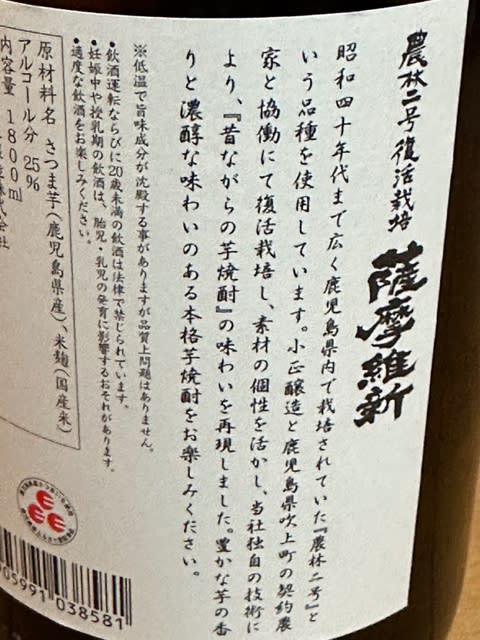 農林二号復活栽培
薩摩維新
昭和四十年代まで広く鹿児島県内で栽培されていた『農林二号』と
いう品種を使用しています。小正醸造と鹿児島県吹上町の契約農
家と協働にて復活栽培し、素材の個性を活かし、当社独自の技術に
より、『昔ながらの芋焼酎』の味わいを再現しました。豊かな芋の香
りと濃醇な味わいのある本格芋焼酎をお楽しみください。
※低温で旨味成分が沈殿する事がありますが品質上問題はありません。
・飲酒運転ならびに20歳未満の飲酒は法律で禁じられています。
・妊娠中や授乳期の飲酒は、胎児・乳児の発育に影響するおそれがあります。
・適度な飲酒をお楽しみください。
原材料名 さつま芋(鹿児島県産)、米麹(国産米)
アルコール分 25%
内容量 1800ml
株式会社
05991 038581